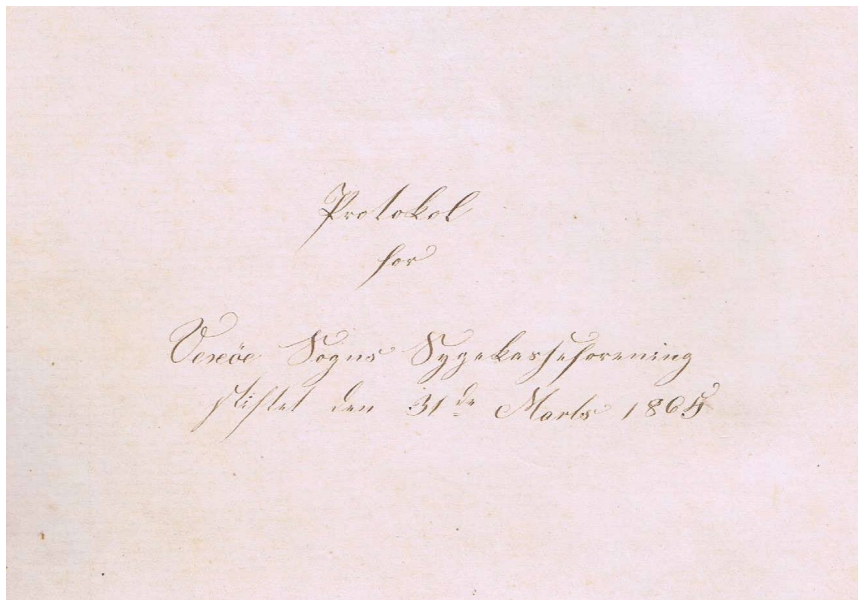 Protokol
for
Vexöe Sogns Sygekasseforening
stiftet den 31de Marts 1865